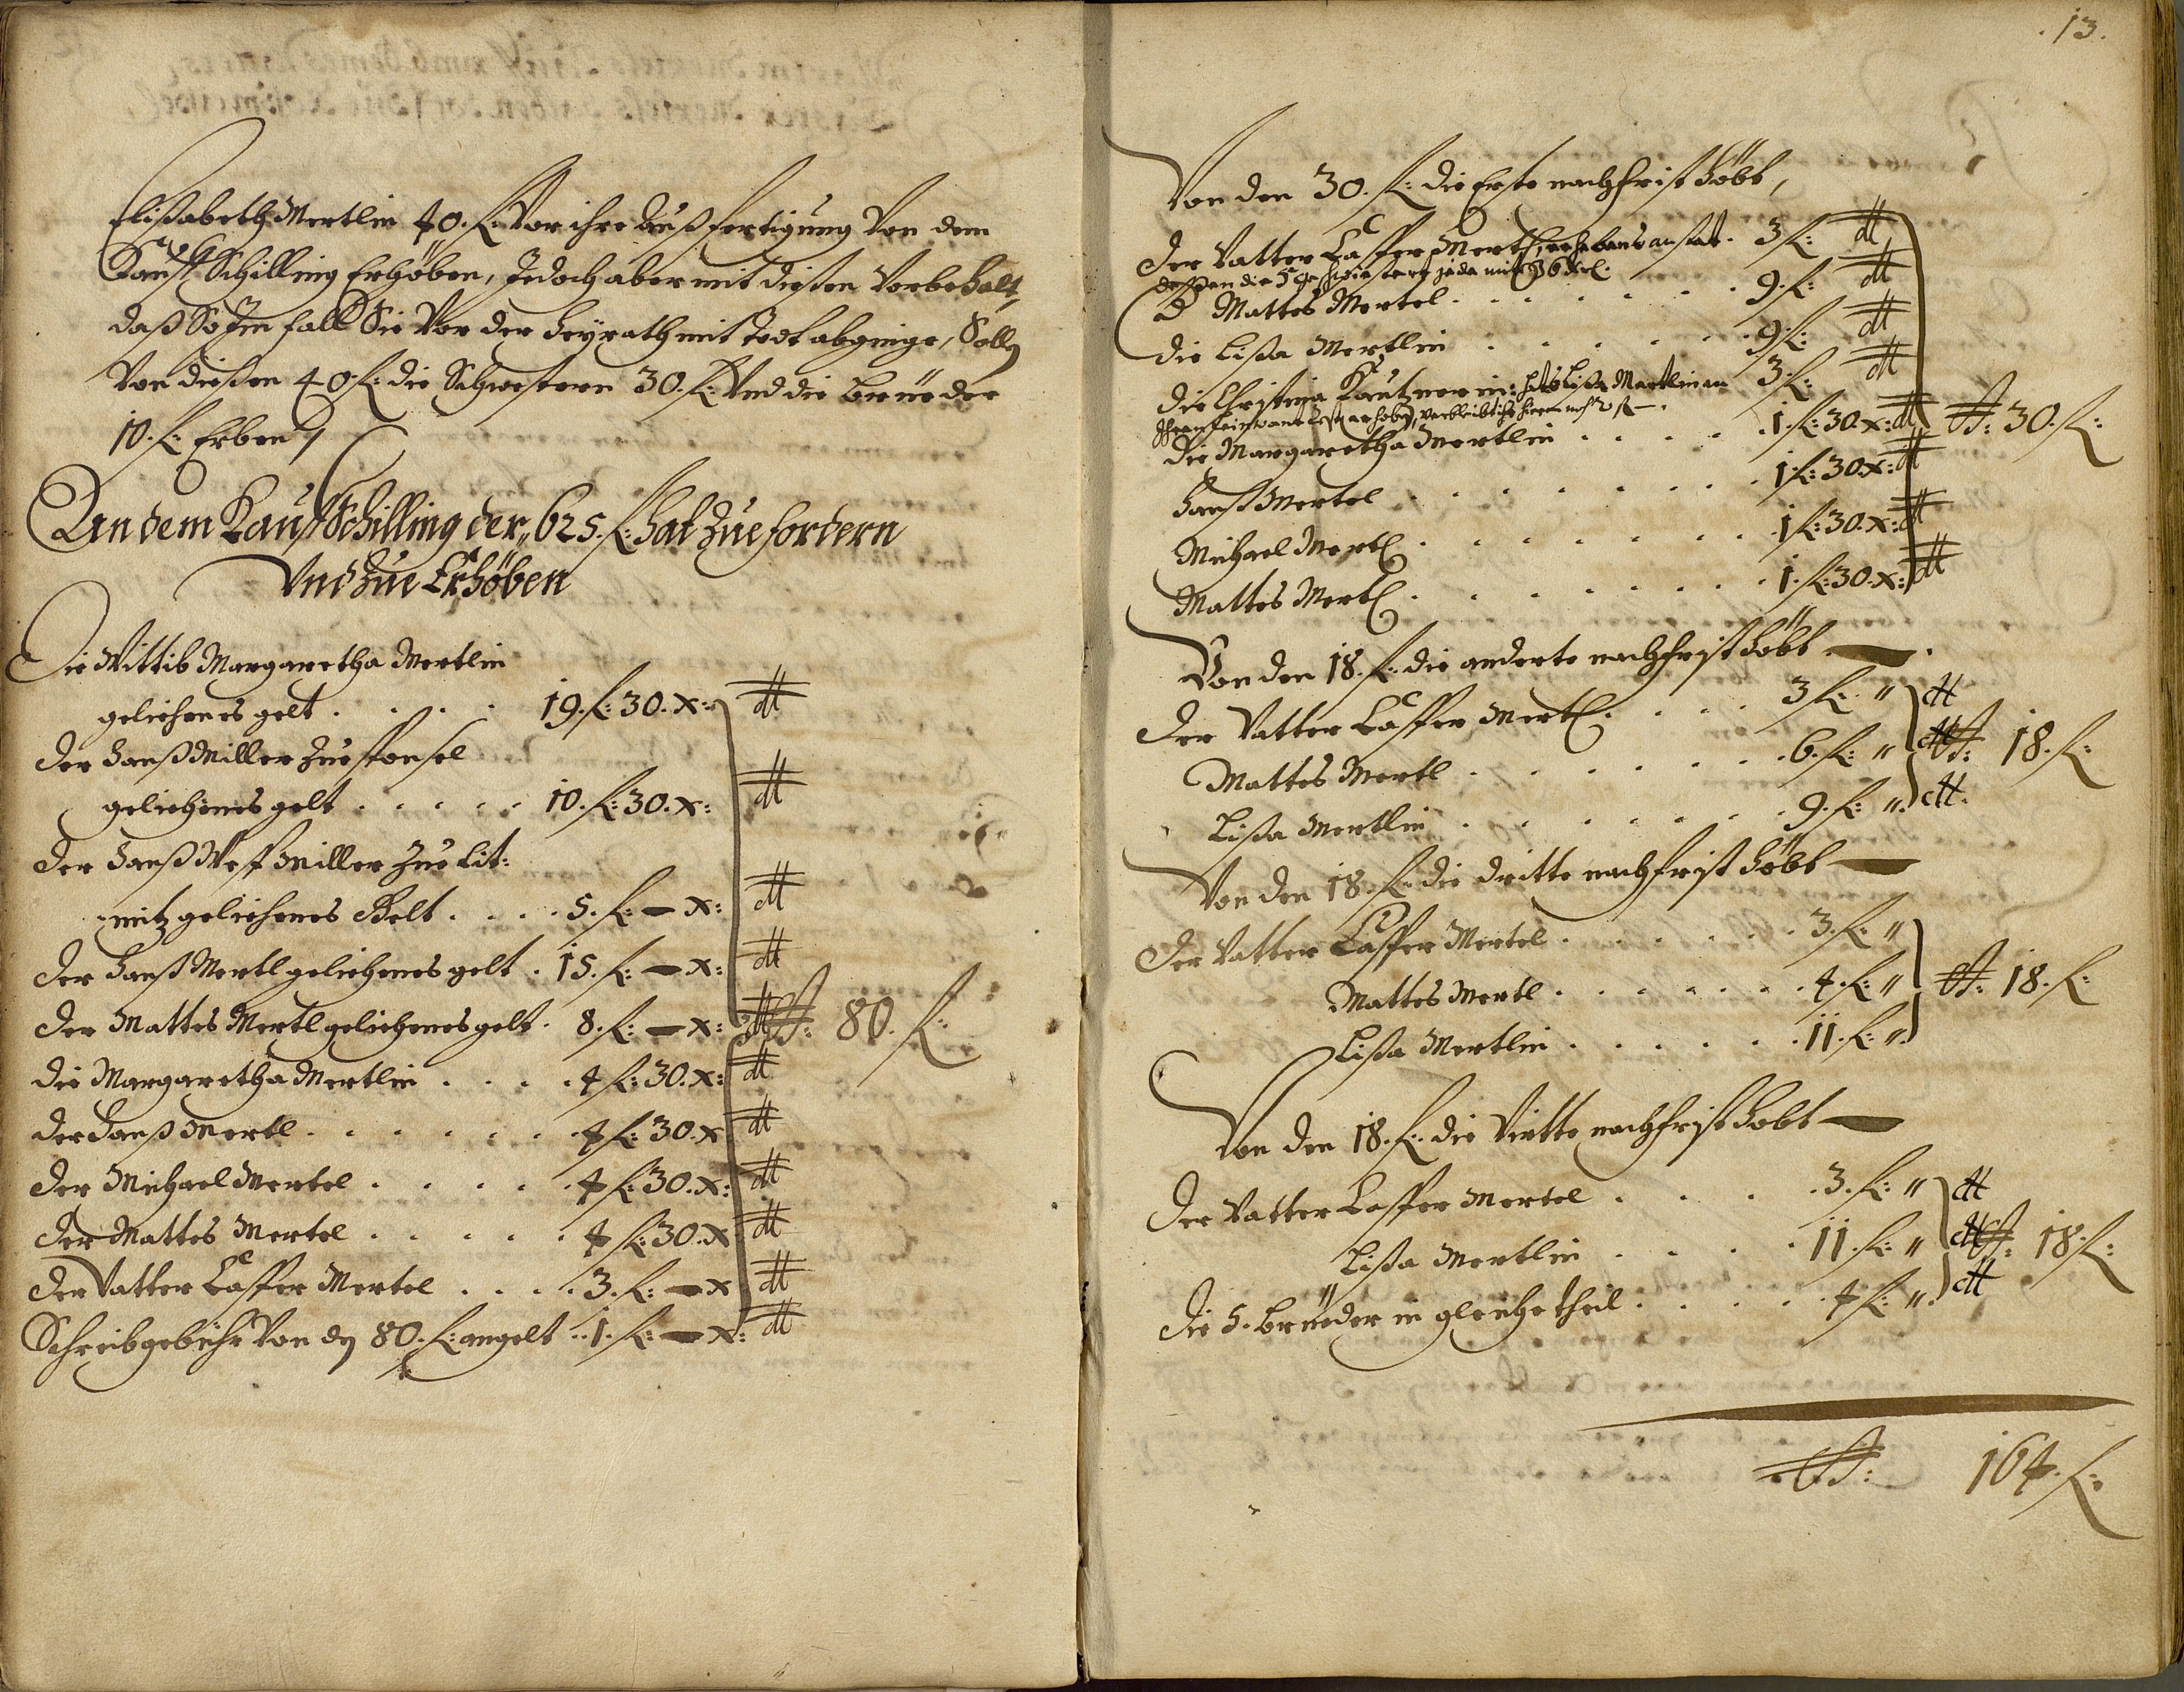 Elisabeth Mertlin 40. fl: Vor ihre Außfertigung Von dem
Kauff Schilling Erhöben, Jedoch aber mit dießen Vorbehalt,
daß So Im fall Sie Vor der heÿrath mit Todt abginge, Solln
Von dießen 40. fl: die Schwestern 30. fl: Vnd die Brüeder
10. fl: Erben /
An dem Kauff Schilling der 625. fl: hat Zue fordern
Vnd Zue Erhöben
Die Wittib Margaretha Mertlin
geliehenes gelt . . . . 19. fl: 30. x: dt
der Hanß Miller Zue
geliehenes gelt . . . . . 10. fl: 30. x: dt
der Hanß Miller Zue Lit:
mitz geliehenes Gelt . . . . 5. fl: — x: dt
der Hanß Mertl geliehenes gelt . 15. fl: — x: dt
der Mattes Mertl geliehenes gelt . 8. fl: — x: dt 80. fl:
die Margaretha Mertlin . . . . 4 fl: 30. x: dt
der Hanß Mertl . . . . . . 4 fl: 30. x dt
der Michael Mertel . . . . . 4 fl: 30. x: dt
der Mattes Mertel . . . . . 4 fl: 30. x dt
der Vatter Casper Mertel . . . . 3. fl: — x dt
Schreibgebühr Von dn 80. fl: angelt . . 1. fl: — x: dt
. 13.
Von den 30. fl: die Erste nachfrist höbt,
der Vatter Casper Mertl, anstat . 3 fl: dt
deßen die 5 jede mit
Mattes Mertel . . . . . . . 9. fl: dt
die Lisa Mertlin . . . . . . 9 fl: dt
die Christina Kautznerin: hat Lisa Mertlin an 3. fl: dt
erhoben, verbleibt
die Margaretha Mertlin . . . . . 1. fl: 30. x: dt 30. fl:
Hanß Mertel . . . . . . . . 1 fl: 30 x: dt
Michael Mertl . . . . . . . 1 fl: 30. x: dt
Mattes Mertl . . . . . . . 1. fl: 30. x: dt
Von den 18. fl: die anderte nachfrist höbt — .
der Vatter Casper Mertl . . . . 3 fl: " dt
Mattes Mertl . . . . . . . 6. fl: " dt 18. fl:
Lisa Mertlin . . . . . . . 9. fl: " dt.
Von den 18. fl: die dritte nachfrist höbt —
der Vatter Casper Mertel . . . . . . 3. fl: "
Mattes Mertl . . . . . . . 4. fl: " 18. fl:
Lisa Mertlin . . . . . . 11. fl: "
Von den 18. fl: die Virtte nachfrist höbt —
der Vatter Casper Mertel . . . . 3. fl: " dt
Lisa Mertlin . . . . 11. fl: " dt 18. fl:
die 5. Brüeder in gleiche theil . . . . . 4 fl: " dt
164. fl: